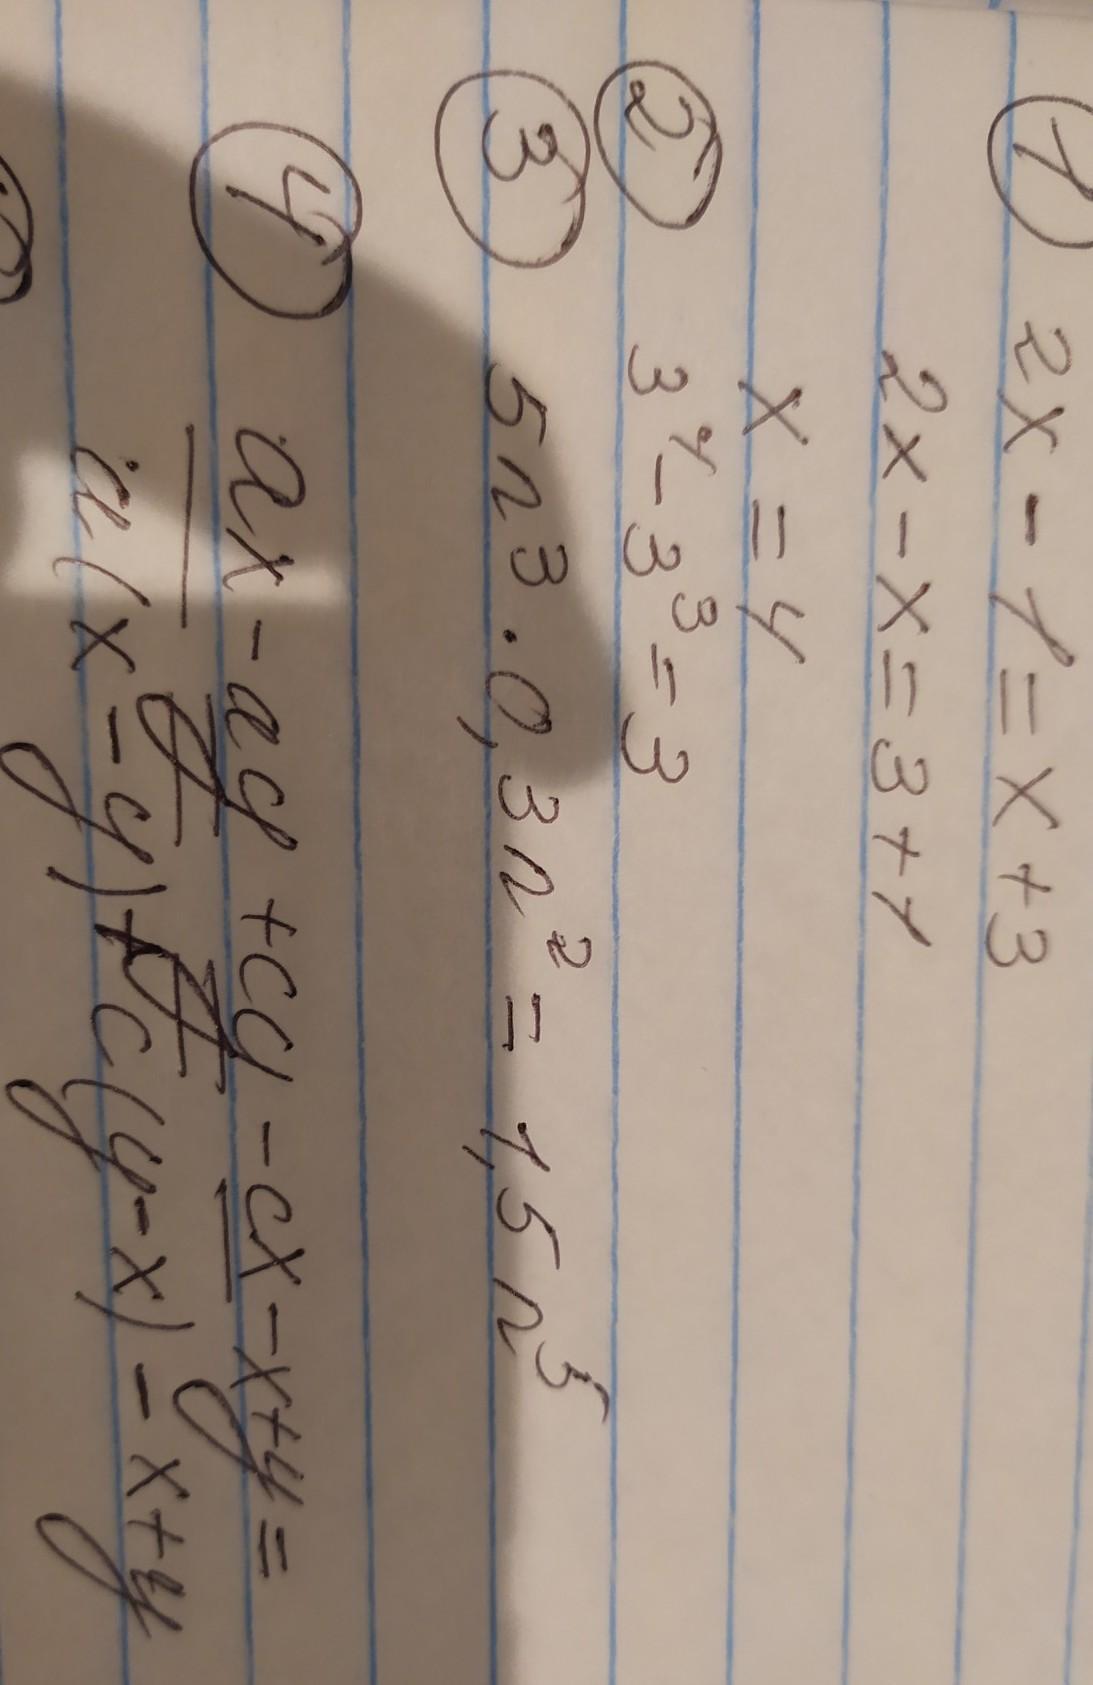 ① 2x - 1 = x + 3
2x - x = 3 + 1
x = 4
② 3⁴ - 3³ = 3
③ 5n³ · 0,3n² = 1,5n⁵
④ ax - ay + cy - cx - x + y =
a(x - y) + c(y - x) - x + y